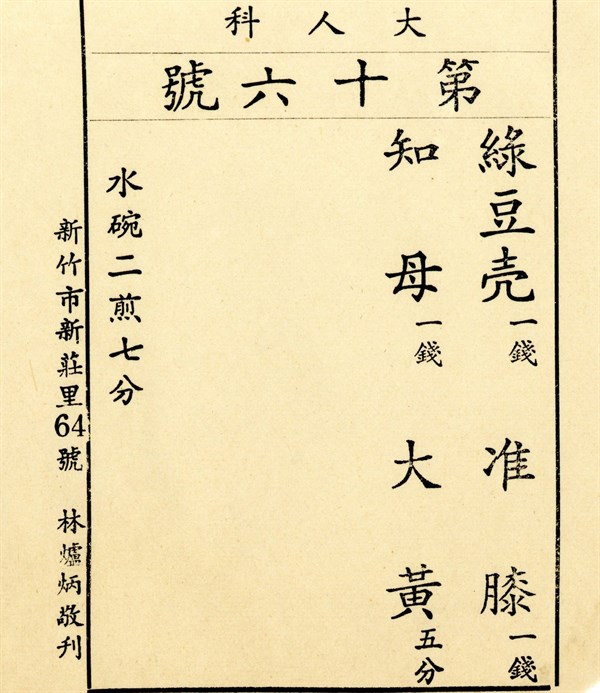 大人科
第十六號
綠豆壳一錢 准膝一錢
知母一錢 大黃五分
水碗二煎七分
新竹市新莊里64號 林爐炳敬刊